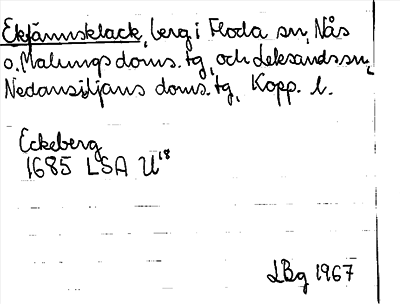 Ekjännsklack, berg i Floda sn, Nås
o. Malungs doms. tg, och Leksands sn,
Nedansiljans doms. tg, Kopp. l.
Eckeberg
1685 LSA U¹⁸
LBg 1967